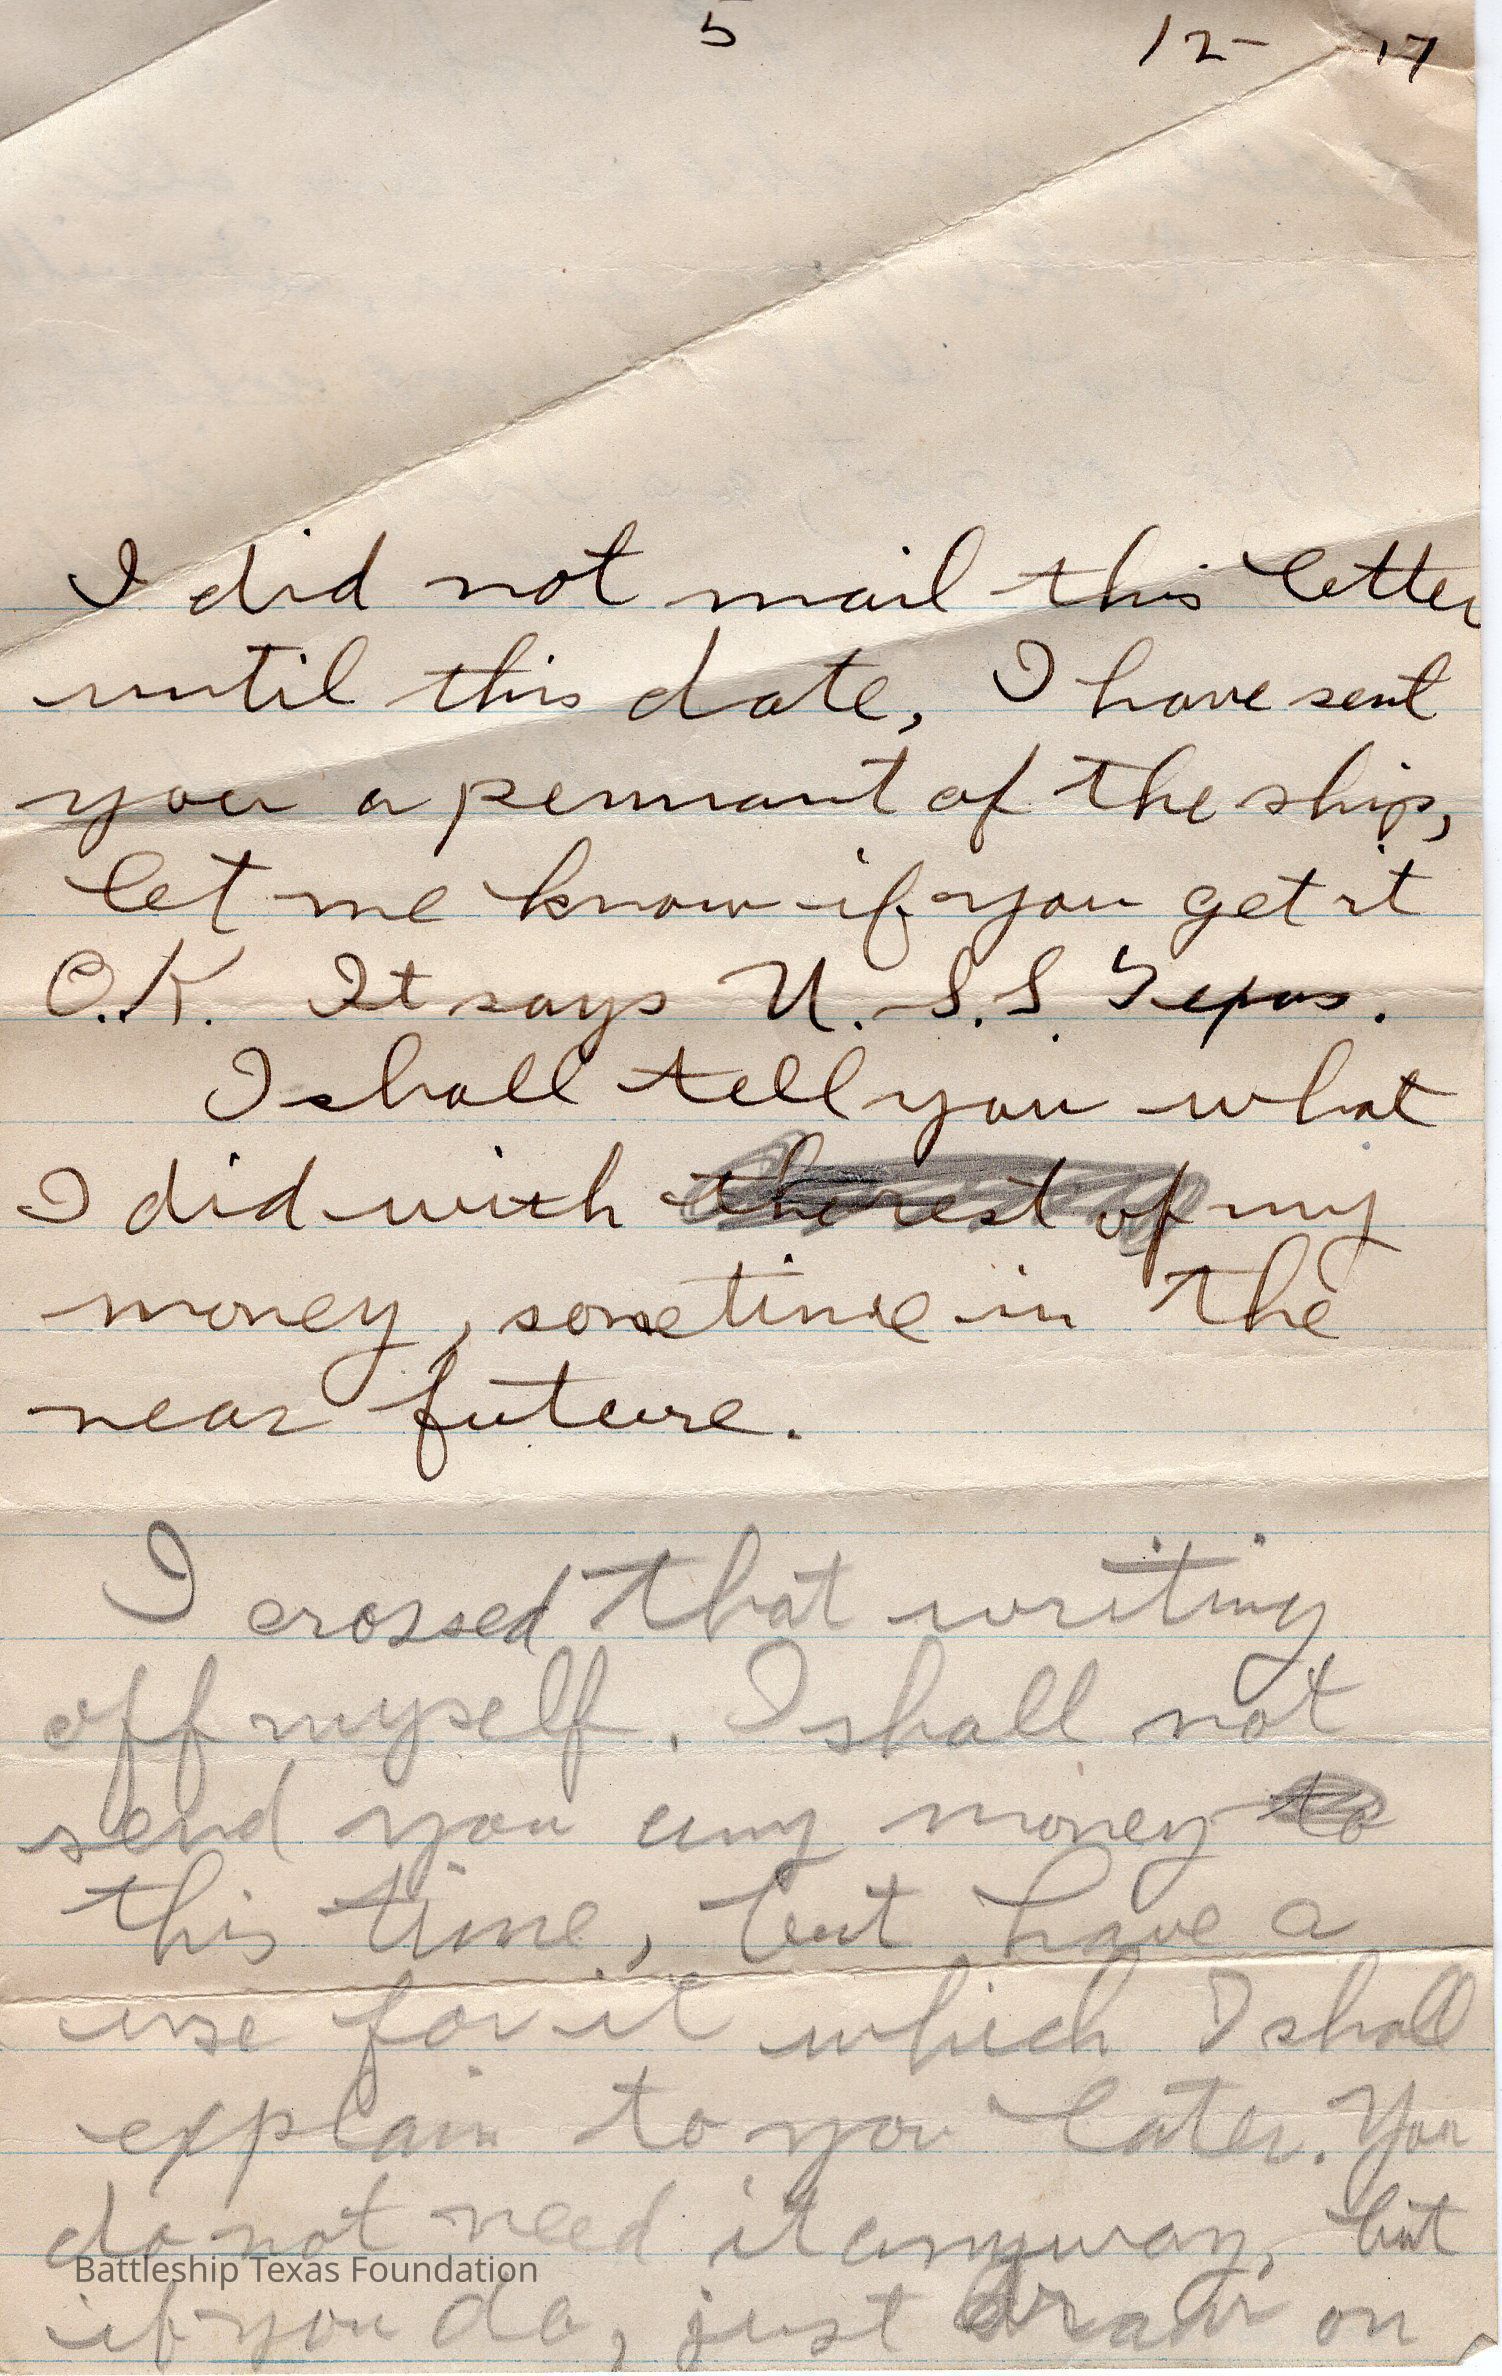 5 12-17
I did not mail this letter
until this date, I have sent
you a pennant of the ship,
let me know if you get it
O.K. It says U.S.S. Texas.
I shall tell you what
I did with the rest of my
money, sometime in the
near future.
I crossed that writing
off myself. I shall not
send you any money to
this time, but have a
use for it which I shall
explain to you later. You
do not need it anyway, but
Battleship Texas Foundation
if you do, just draw on